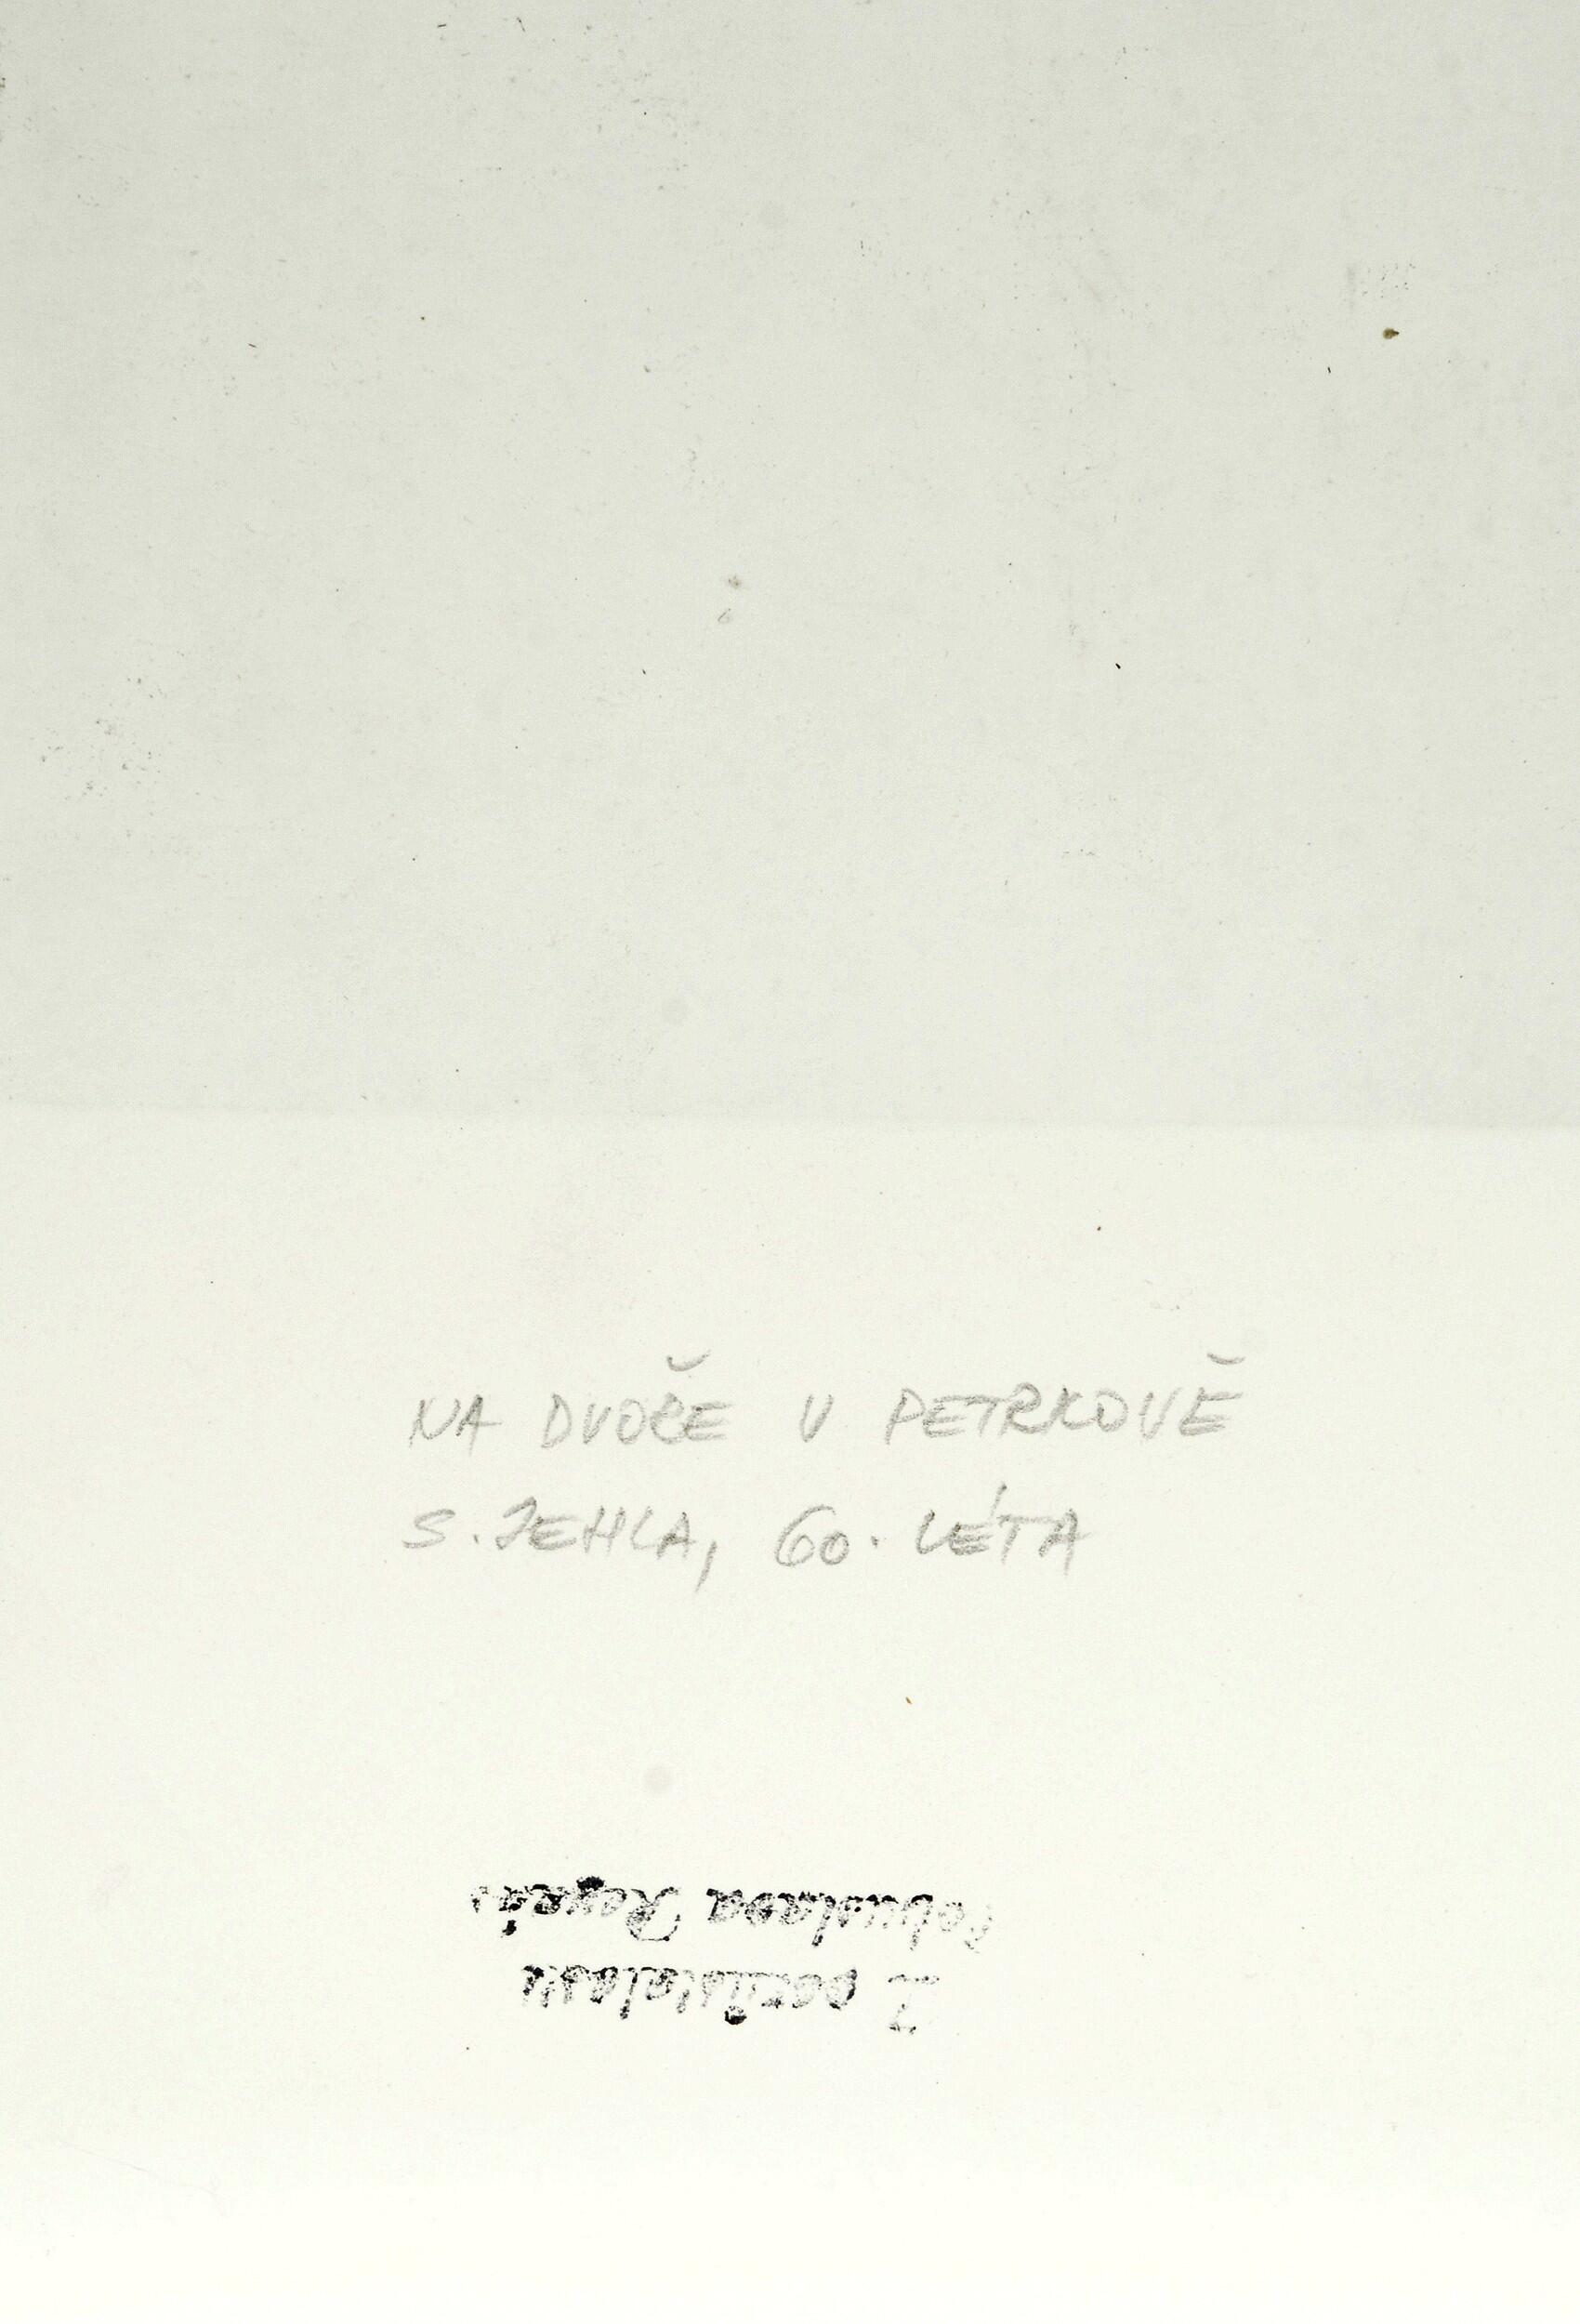 NA DVOŘE V PETRKOVĚ
S. JEHLA, 60. LÉTA
Z pozůstalosti
Bohuslava Reynka